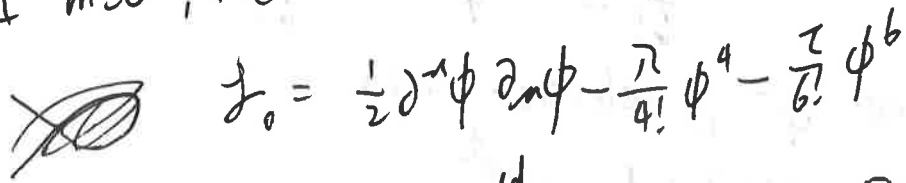 ℒ₀ = ½ ∂^μ φ ∂_μ φ − λ/4! φ⁴ − τ/6! φ⁶